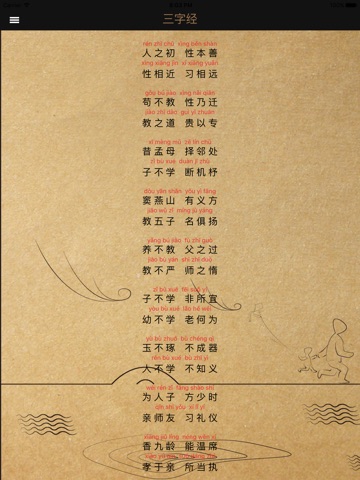 三字经
rén zhī chū xìng běn shàn
人之初 性本善
xìng xiāng jìn xí xiāng yuǎn
性相近 习相远
gǒu bú jiào xìng nǎi qiān
苟不教 性乃迁
jiào zhī dào guì yǐ zhuān
教之道 贵以专
xī mèng mǔ zé lín chǔ
昔孟母 择邻处
zǐ bù xué duàn jī zhù
子不学 断机杼
dòu yān shān yǒu yì fāng
窦燕山 有义方
jiào wǔ zǐ míng jù yáng
教五子 名俱扬
yǎng bú jiào fù zhī guò
养不教 父之过
jiào bù yán shī zhī duò
教不严 师之惰
zǐ bù xué fēi suǒ yí
子不学 非所宜
yòu bù xué lǎo hé wéi
幼不学 老何为
yù bù zhuó bù chéng qì
玉不琢 不成器
rén bù xué bù zhī yì
人不学 不知义
wéi rén zǐ fāng shào shí
为人子 方少时
qīn shī yǒu xí lǐ yí
亲师友 习礼仪
xiāng jiǔ líng néng wēn xí
香九龄 能温席
孝于亲 所当执